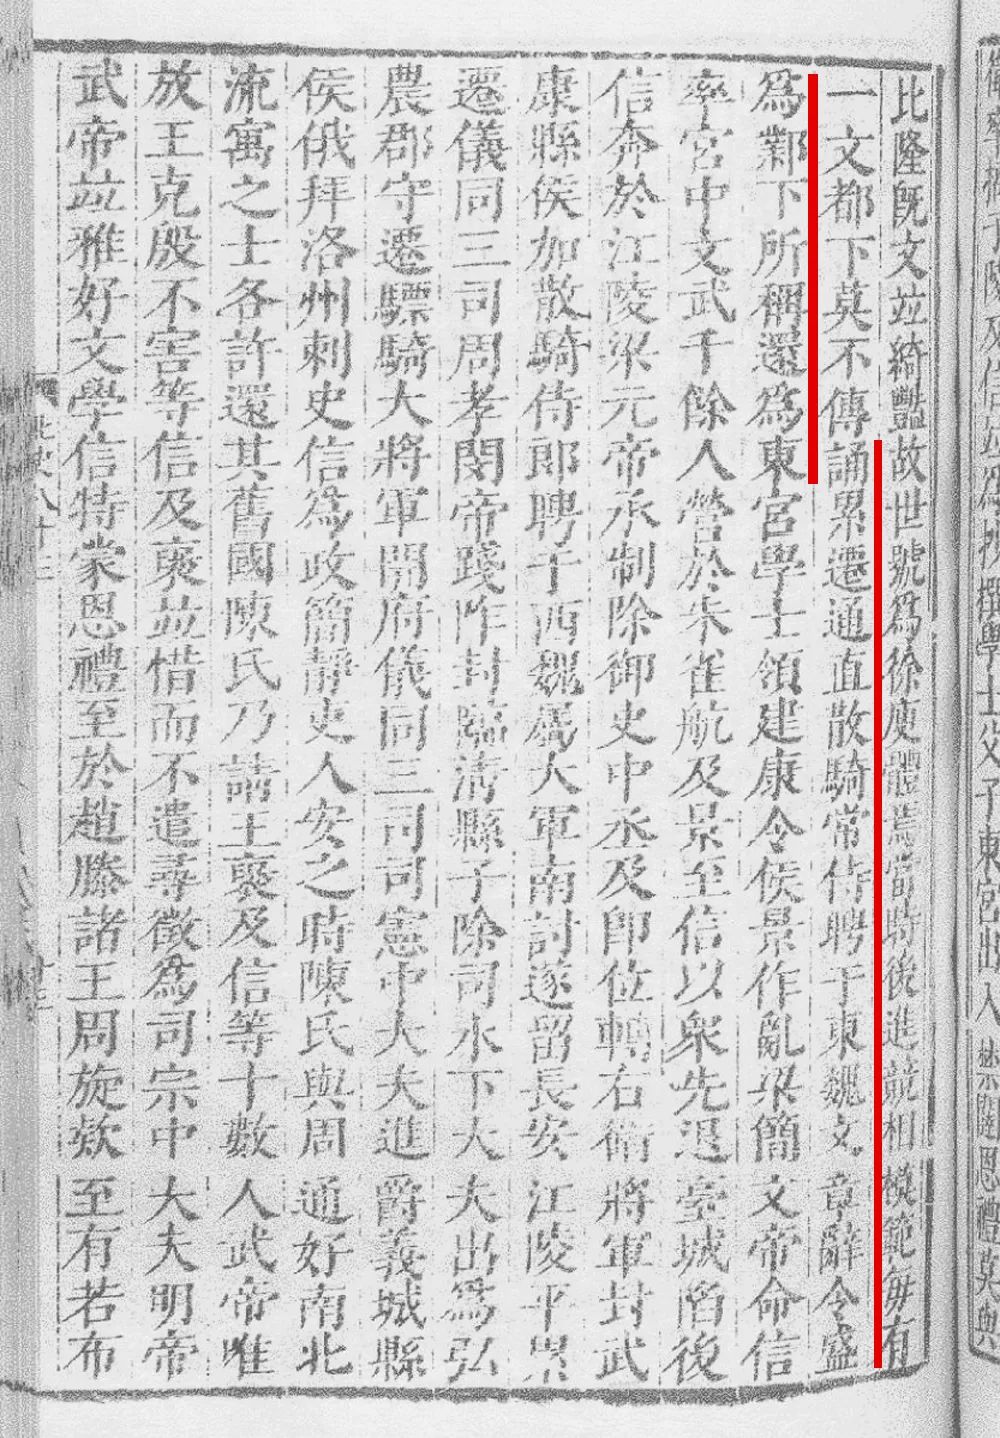 比隆旣文竝綺豔故世號爲徐庾體焉當時後進競相模範每有
一文都下莫不傳誦累遷通直散騎常侍聘于東魏文章辭令盛
爲鄴下所稱還爲東宮學士領建康令侯景作亂梁簡文帝命信
率宮中文武千餘人營於朱雀航及景至信以衆先退臺城陷後
信奔於江陵梁元帝承制除御史中丞及卽位轉右衛將軍封武
康縣侯加散騎侍郎聘于西魏屬大軍南討遂留長安江陵平累
遷儀同三司周孝閔帝踐阼封臨淸縣子除司水下大夫出爲弘
農郡守遷驃騎大將軍開府儀同三司司憲中大夫進爵義城縣
侯俄拜洛州刺史信爲政簡靜吏人安之時陳氏與周通好南北
流寓之士各許還其舊國陳氏乃請王褒及信等十數人武帝唯
放王克殷不害等信及褒竝惜而不遣尋徵爲司宗中大夫明帝
武帝竝雅好文學信特蒙恩禮至於趙滕諸王周旋欵至有若布